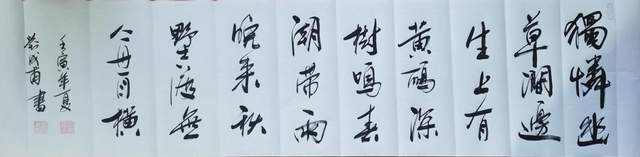 獨憐幽
草澗邊
生上有
黃鸝深
樹鳴春
潮帶雨
晚来秋
野渡無
人舟自橫
壬寅年夏
書